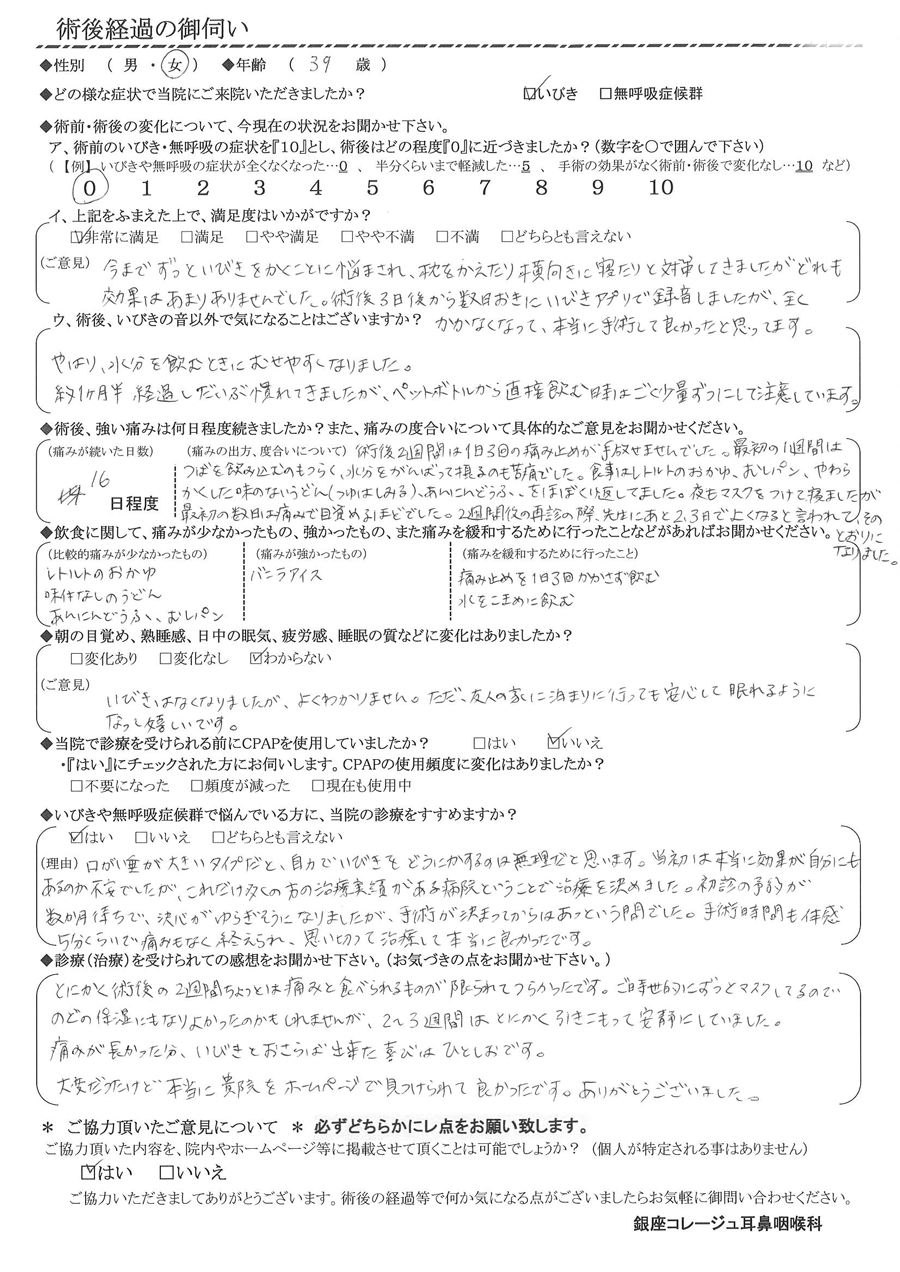 術後経過の御伺い
◆性別 ( 男 ・ 女 ) ◆年齢 ( 39 歳 )
◆どの様な症状で当院にご来院いただきましたか? ☑いびき □無呼吸症候群
◆術前・術後の変化について、今現在の状況をお聞かせ下さい。
ア、術前のいびき・無呼吸の症状を『10』とし、術後はどの程度『0』に近づきましたか?(数字を〇で囲んで下さい)
(【例】いびきや無呼吸の症状が全くなくなった…0 、 半分くらいまで軽減した…5 、 手術の効果がなく術前・術後で変化なし…10 など)
0 1 2 3 4 5 6 7 8 9 10
イ、上記をふまえた上で、満足度はいかがですか?
☑非常に満足 □満足 □やや満足 □やや不満 □不満 □どちらとも言えない
(ご意見) 今までずっといびきをかくことに悩まされ、枕をかえたり横向きに寝たりと対策してきましたがどれも
効果はあまりありませんでした。術後3日後から数日おきにいびきアプリで録音しましたが、全く
ウ、術後、いびきの音以外で気になることはございますか? かかなくなって、本当に手術して良かったと思ってます。
やはり、水分を飲むときにむせやすくなりました。
約1ヶ月半 経過しだいぶ慣れてきましたが、ペットボトルから直接飲む時はごく少量ずつにして注意しています。
◆術後、強い痛みは何日程度続きましたか?また、痛みの度合いについて具体的なご意見をお聞かせください。
(痛みが続いた日数) (痛みの出方、度合いについて) 術後2週間は1日3回の痛み止めが手放せませんでした。最初の1週間は
つばを飲み込むのもつらく、水分をがんばって摂るのも苦痛でした。食事はレトルトのおかゆ、むしパン、やわら
16 日程度 かくした味のないうどん(つゆはしみる)、あんにんどうふ、、をほぼくり返してました。夜もマスクをつけて寝ましたが
最初の数日は痛みで目覚めるほどでした。2週間後の再診の際、先生にあと2、3日でよくなると言われて、その
◆飲食に関して、痛みが少なかったもの、強かったもの、また痛みを緩和するために行ったことなどがあればお聞かせください。 とおりに
なりました。
(比較的痛みが少なかったもの) (痛みが強かったもの) (痛みを緩和するために行ったこと)
レトルトのおかゆ バニラアイス 痛み止めを1日3回かかさず飲む
味付なしのうどん 水をこまめに飲む
あんにんどうふ、、むしパン
◆朝の目覚め、熟睡感、日中の眠気、疲労感、睡眠の質などに変化はありましたか?
□変化あり □変化なし ☑わからない
(ご意見)
いびきはなくなりましたが、よくわかりません。ただ、友人の家に泊まりに行っても安心して眠れるように
なって嬉しいです。
◆当院で診療を受けられる前にCPAPを使用していましたか? □はい ☑いいえ
・『はい』にチェックされた方にお伺いします。CPAPの使用頻度に変化はありましたか?
□不要になった □頻度が減った □現在も使用中
◆いびきや無呼吸症候群で悩んでいる方に、当院の診療をすすめますか?
☑はい □いいえ □どちらとも言えない
(理由) 口がい垂が大きいタイプだと、自力でいびきをどうにかするのは無理だと思います。当初は本当に効果が自分にも
あるのか不安でしたが、これだけ多くの方の治療実績がある病院ということで治療を決めました。初診の予約が
数か月待ちで、決心がゆらぎそうになりましたが、手術が決まってからはあっという間でした。手術時間も体感
5分くらいで痛みもなく終えられ、思い切って治療して本当に良かったです。
◆診療(治療)を受けられての感想をお聞かせ下さい。(お気づきの点をお聞かせ下さい。)
とにかく術後の2週間ちょっとは痛みと食べられるものが限られてつらかったです。ご時世的にずっとマスクしてるので
のどの保湿にもなりよかったのかもしれませんが、2〜3週間はとにかく引きこもって安静にしていました。
痛みが長かった分、いびきとおさらば出来た喜びはひとしおです。
大変だったけど本当に貴院をホームページで見つけられて良かったです。ありがとうございました。
＊ ご協力頂いたご意見について ＊ 必ずどちらかにレ点をお願い致します。
ご協力頂いた内容を、院内やホームページ等に掲載させて頂くことは可能でしょうか? (個人が特定される事はありません)
☑はい □いいえ
ご協力いただきましてありがとうございます。術後の経過等で何か気になる点がございましたらお気軽に御問い合わせください。
銀座コレージュ耳鼻咽喉科